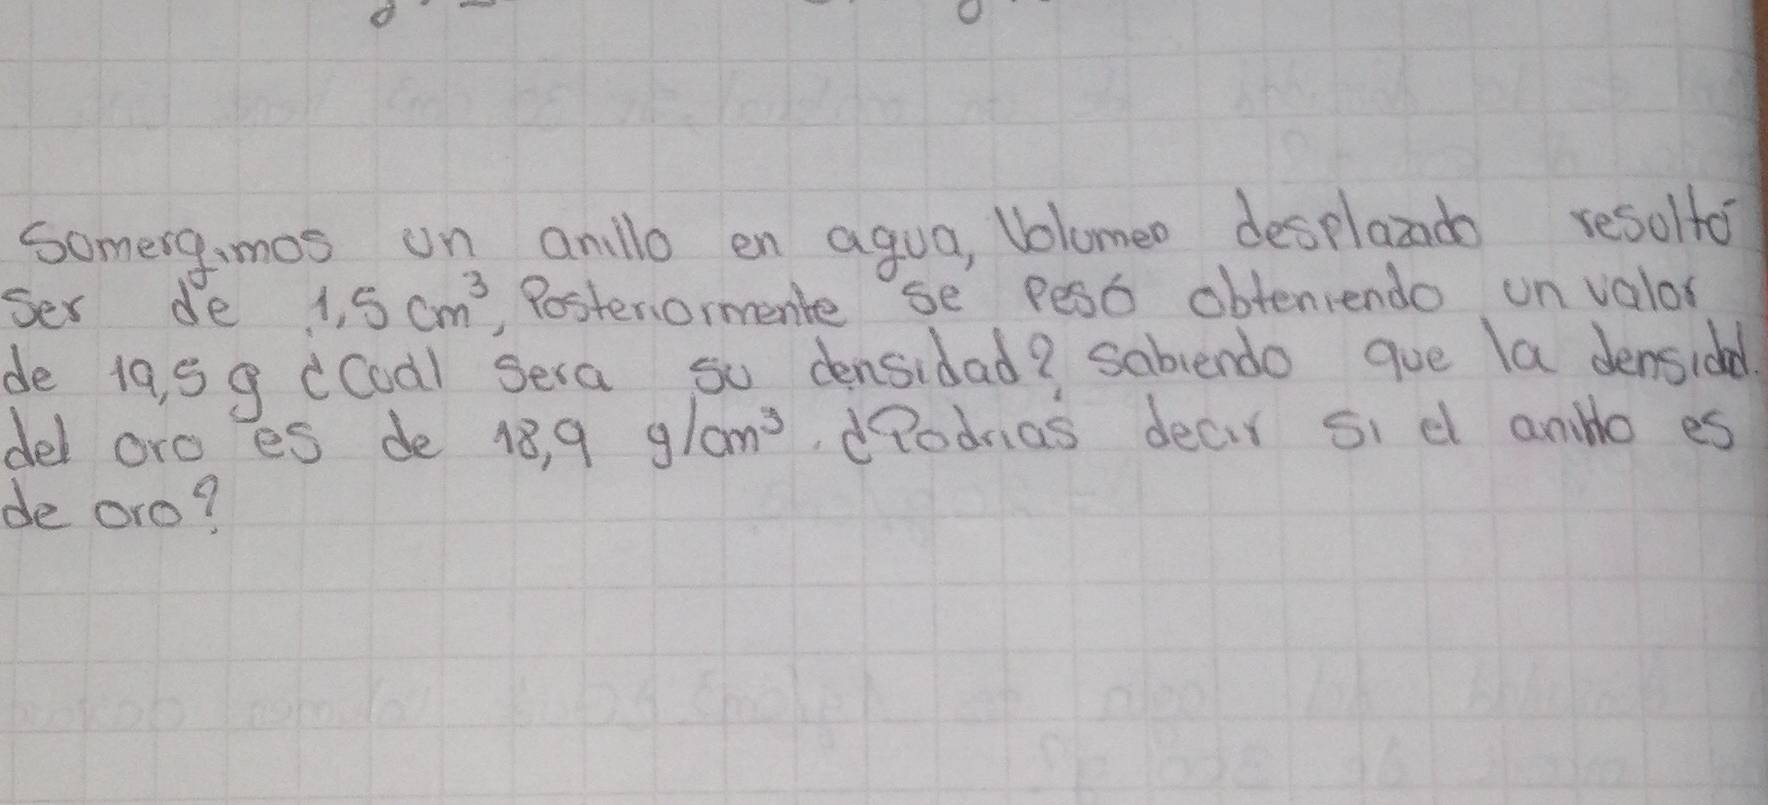 Somergimos un anillo en agua, Volumen desplazado resultó
ser de 1,5 cm³, Posteriormente se pesó obteniendo un valor
de 19,5 g ¿Cual sera su densidad? sabiendo que la densidad.
del oro es de 18,9 g/cm³. ¿Podrías decir si el anillo es
de oro?